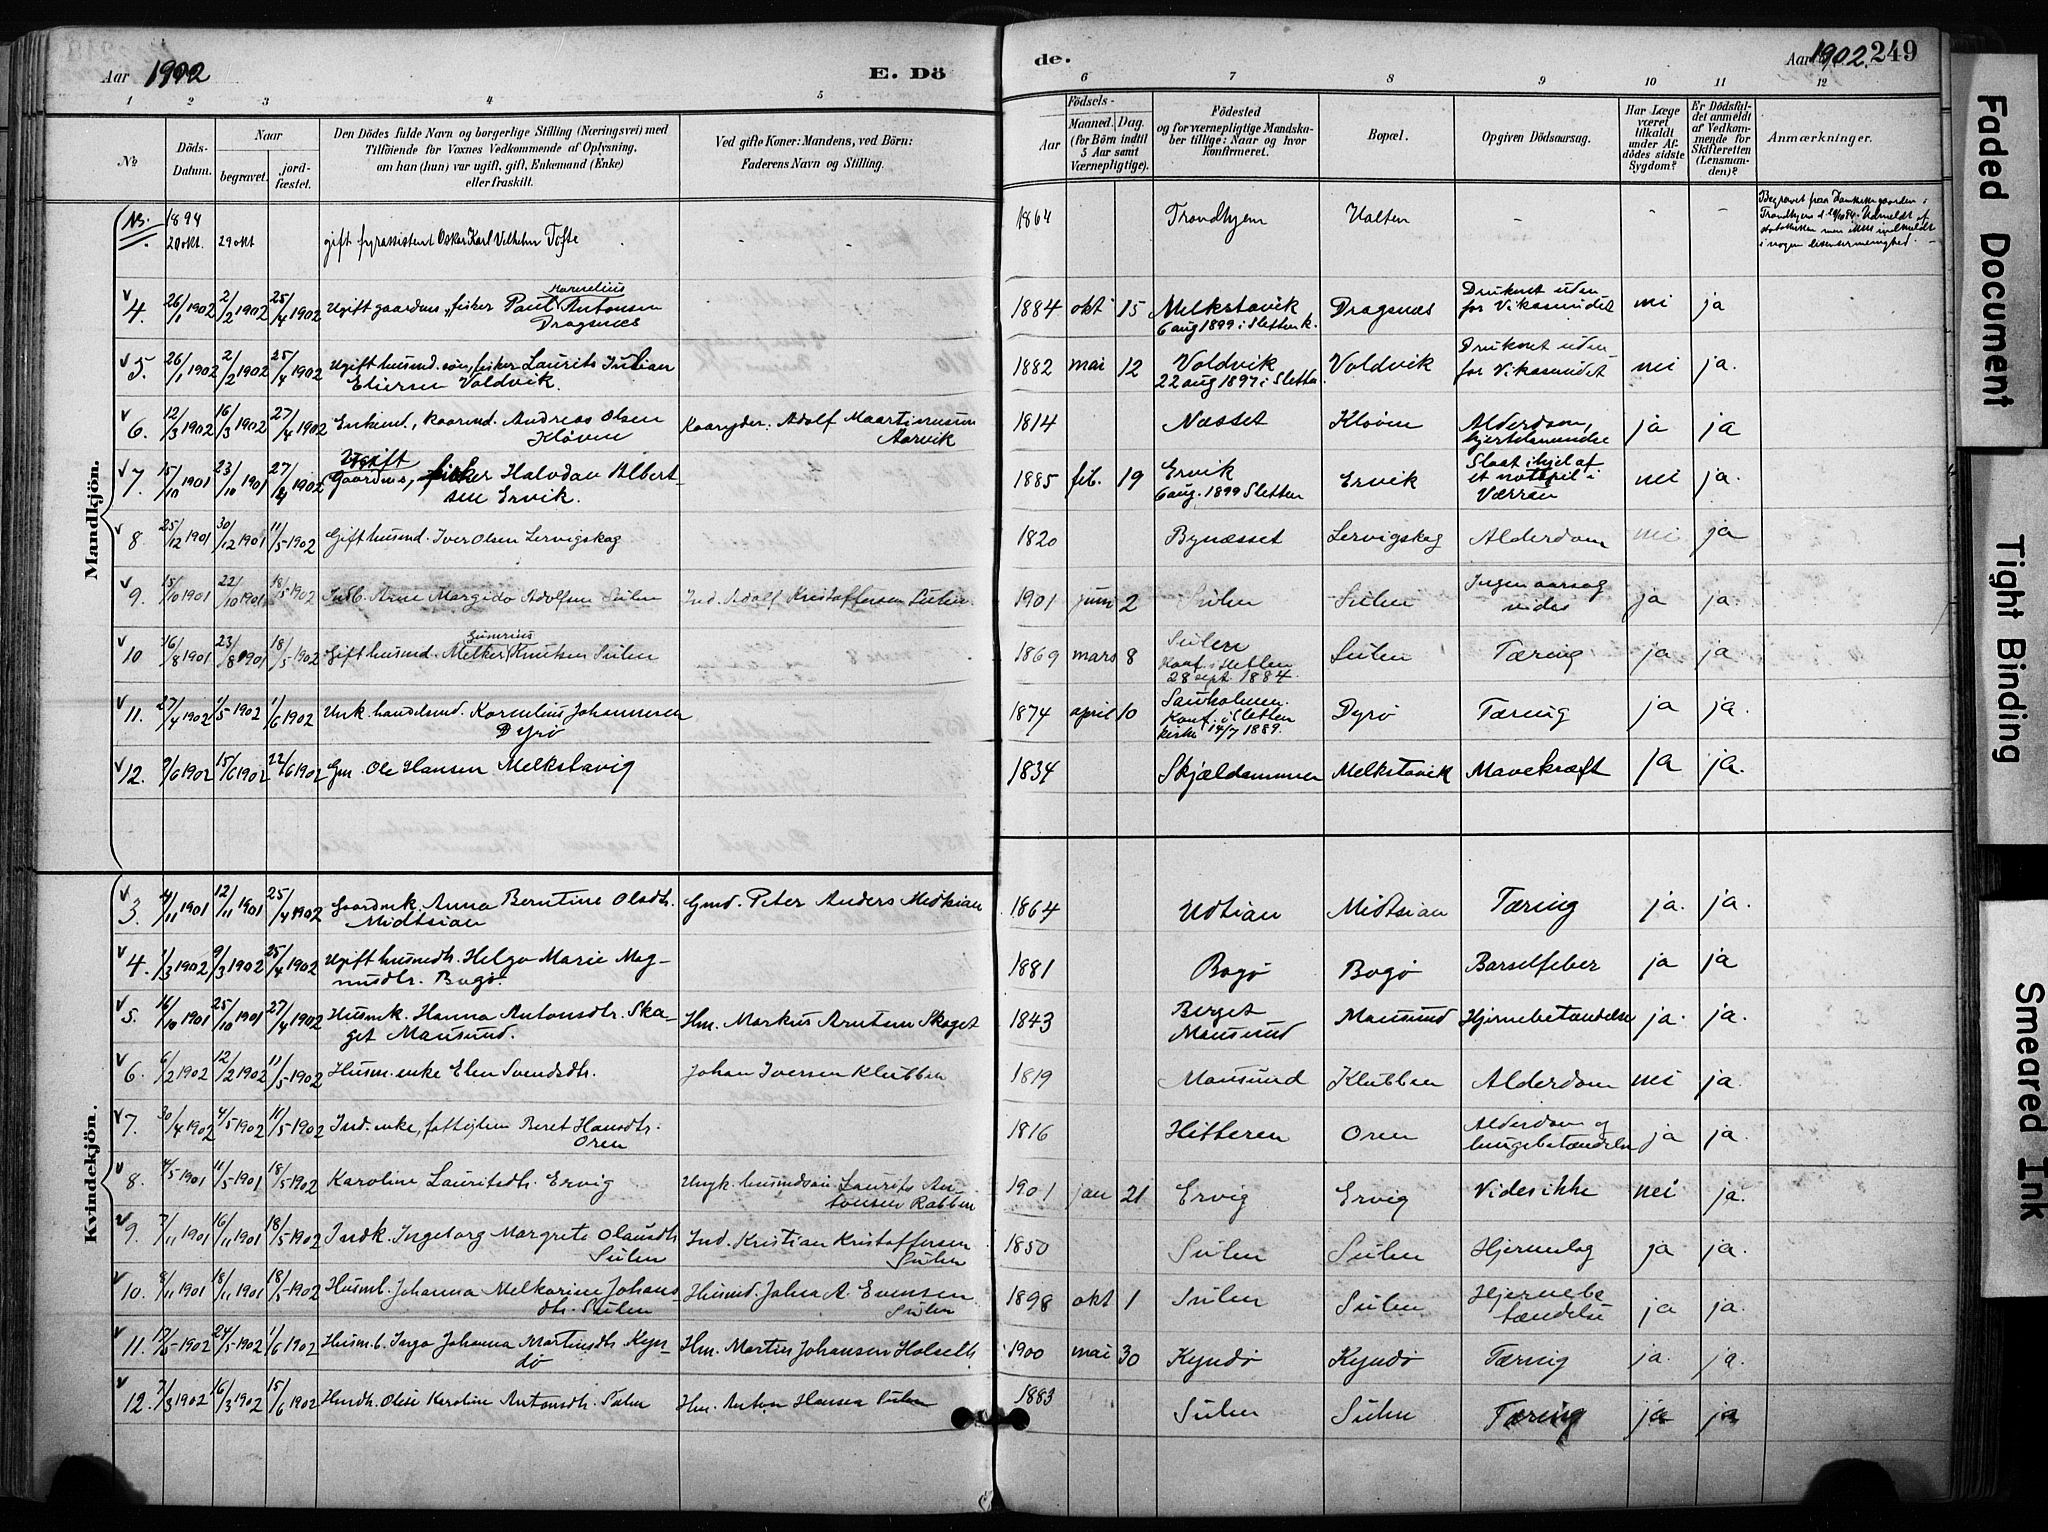 Aar 1902
E. Dö
de.
Aar 1902. 249
1 2 3 4 5 6 7 8 9 10 11 12
No
Döds-Datum.
Naar
begravet.
jord-fæstet.
Den Dödes fulde Navn og borgerlige Stilling (Næringsvei) med
Tilföiende for Voxnes Vedkommende af Oplysning,
om han (hun) var ugift, gift, Enkemand (Enke)
eller fraskilt.
Ved gifte Koner: Mandens, ved Börn:
Faderens Navn og Stilling.
Aar
Födsels-
Maaned. Dag.
(for Börn indtil
5 Aar samt
Værnepligtige).
Födested
og for værnepligtige Mandska-
ber tillige: Naar og hvor
konfirmeret.
Bopæl.
Opgiven Dödsaarsag.
Har Læge
været
tilkaldt
under Af-
dödes sidste
Sygdom?
Er Dödsfal-
det anmeldt
af Vedkom-
mende for
Skifteretten
(Lensman-
den)?
Anmærkninger.
Mandkjön.
NB. 1894 20 okt. 29 okt gift fyrassistent Oskar Karl Vilhelm Tofte 1864 Trondhjem Halten - - -
Begravet fra
Trondhjem
i nogen dissentermenighed.
4. 26/1 1902 2/2 1902 25/4 1902 Ugift gaardms, fisker Paul Kornelius Antonsen
Dragsnæs 1884 okt 15 Melkstavik
6 aug 1899 i Sletten k. Dragsnæs Druknet uden
for Vikasundet nei ja
5. 26/1 1902 2/2 1902 25/4 1902 Ugift husmd. søn, fisker Laurits Julian
Eliersen Valdvik. 1882 mai 12 Voldvik
22 aug 1897 i Sletten. Voldvik Druknet uden
for Vikasundet nei ja.
6. 12/3 1902 16/3 1902 27/4 1902 Enkemd., kaarmd. Andreas Olsen
Kløven Kaaryder: Adolf Maartinusen
Aarvik 1814 Næsset Kløven Alderdom,
ja ja
7. 15/10 1901 23/10 1901 27/4 1902 Ugift
Gaardms, fisker Halvdan Albert-
sen Ervik. 1885 feb. 19 Ervik
6 aug. 1899 Sletten Ervik Slaat ihjel af
et notspil i
Værran nei ja.
8. 25/12 1901 30/12 1901 11/5 1902 Gift husmd. Iver Olsen Lervigskag 1820 Bynæsset Lervigskag Alderdom nei ja
9. 15/10 1901 22/10 1901 18/5 1902 Indb. Arne Margido Adolfsen Sulen Ind. Adolf Kristoffersen Sulen 1901 juni 2 Sulen Sulen Ingen aarsag
vides ja ja.
10 16/8 1901 23/8 1901 18/5 1902 Gift husmd. Melker Gunerius Knutsen Sulen 1869 mars 8 Sulen
Konf. i Sletten
28 sept. 1884. Sulen Tæring ja. ja
11. 27/4 1902 1/5 1902 1/6 1902 Unk. handelsmd. Kornelius Johannesen
Dyrø 1874 april 10 Sauholmen.
Konf. i Sletten
kirke 14/7 1889. Dyrø Tæring ja ja.
12. 9/6 1902 15/6 1902 22/6 1902 Gm. Ole Hansen Melkstavig 1834 Skjældammen Melkstavik Mavekræft ja ja.
Kvindekjön.
3. 4/11 1901 12/11 1901 25/4 1902 Gaardmk. Anna Berntine Olsdtr.
Midtsian Gmd. Peter Anders Midtsian 1864 Udtian Midtsian Tæring ja. ja.
4. 1/3 1902 9/3 1902 25/4 1902 Ugift husmdtr. Helga Marie Mag-
nusdtr. Bogø. 1881 Bogø Bogø Barselfeber ja ja
5. 16/10 1901 25/10 1901 27/4 1902 Husmk. Hanna Antonsdtr. Ska-
get Mausund. Hm. Markus Arntsen Skaget 1843 Berget
Mausund Mausund Hjernebetændelse ja. ja.
6. 6/2 1902 12/2 1902 11/5 1902 Husm. enke Elen Svendsdtr. Johan Iversen Klubben 1819 Mausund Klubben Alderdom nei ja.
7. 30/4 1902 4/5 1902 11/5 1902 Ind. enke, fattiglem Beret Hansdtr.
Oren 1816 Hitteren Oren Alderdom og
lungebetændelse ja ja.
8. 4/5 1901 11/5 1901 18/5 1902 Karoline Lauritsdtr. Ervig Ungk. husmdsøn Laurits An-
tonsen Rabben 1901 jan 21 Ervig Ervig Vides ikke nei ja.
9. 7/11 1901 16/11 1901 18/5 1902 Indk. Ingeborg Margrete Olausdtr.
Sulen Ind. Kristian Kristoffersen
Sulen 1850 Sulen Sulen Hjerneslag ja ja.
10. 8/11 1901 18/11 1901 18/5 1902 Husmb. Johanna Melkarine Johans-
dtr. Sulen Husmd. Johan A. Evensen
Sulen 1898 okt 1 Sulen Sulen Hjernebe
tændelse ja ja.
11. 17/5 1902 24/5 1902 1/6 1902 Husmb. Inga Johanna Martinsdtr. Kyn-
dø Hm. Martin Johansen Holseth 1900 mai 30 Kyndø Kyndø Tæring ja. ja.
12. 7/3 1902 16/3 1902 15/6 1902 Husdtr. Olise Karoline Antonsdtr. Sulen Hm. Anton Hansen Sulen 1883 Sulen Sulen Tæring ja ja
Faded Document
Tight Binding
Smeared Ink